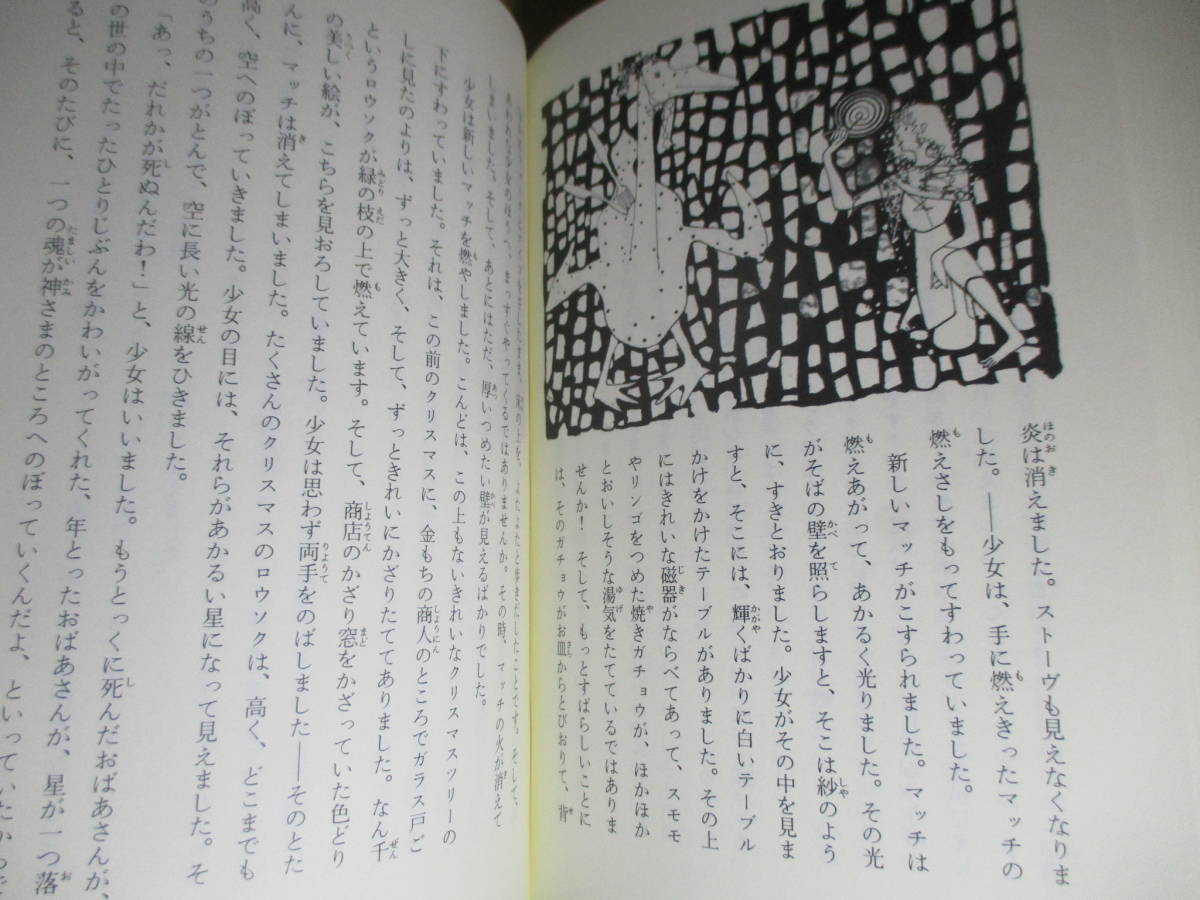 炎は消えました。ストーヴも見えなくなりま
した。――少女は、手に燃えきったマッチの
燃えさしをもってすわっていました。
新しいマッチがこすられました。マッチは
燃えあがって、あかるく光りました。その光
がそばの壁を照らしますと、そこは紗のよう
に、すきとおりました。少女がその中を見ま
すと、そこには、輝くばかりに白いテーブル
かけをかけたテーブルがありました。その上
にはきれいな磁器がならべてあって、スモモ
やリンゴをつめた焼きガチョウが、ほかほか
とおいしそうな湯気をたてているではありま
せんか! そして、もっとすばらしいことに
は、そのガチョウがお皿からとびおりて、背
よたよたと歩きだしたことです。そして、
あわれな少女のほうへ、まっすぐやってくるではありませんか。その時、マッチの火が消えて
しまいました。そして、あとにはただ、厚いつめたい壁が見えるばかりでした。
少女は新しいマッチを燃やしました。こんどは、この上もないきれいなクリスマスツリーの
下にすわっていました。それは、この前のクリスマスに、金もちの商人のところでガラス戸ご
しに見たのよりは、ずっと大きく、そして、ずっときれいにかざりたててありました。なん千
というロウソクが緑の枝の上で燃えています。そして、商店のかざり窓をかざっていた色どり
の美しい絵が、こちらを見おろしていました。少女は思わず両手をのばしました――そのとた
んに、マッチは消えてしまいました。たくさんのクリスマスのロウソクは、高く、どこまでも
高く、空へのぼっていきました。少女の目には、それらがあかるい星になって見えました。そ
のうちの一つがとんで、空に長い光の線をひきました。
「あっ、だれかが死ぬんだわ!」と、少女はいいました。もうとっくに死んだおばあさんが、
の世の中でたったひとりじぶんをかわいがってくれた、年とったおばあさんが、星が一つ落
ると、そのたびに、一つの魂が神さまのところへのぼっていくんだよ、といっていたからで